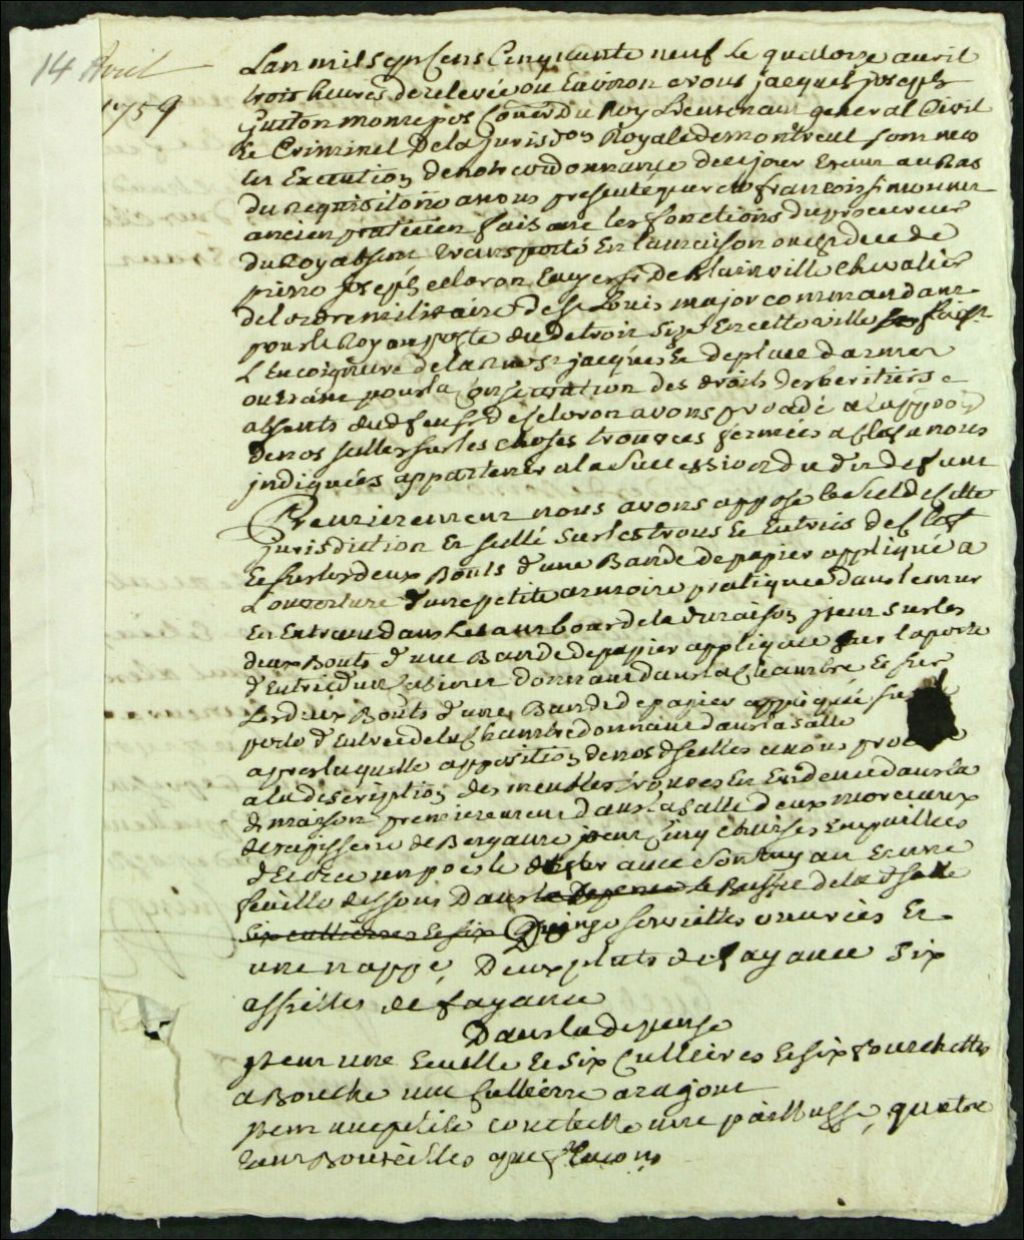 14 Avril
1759
Lan mil sept Cens Cinquante neuf le quatorze avril
trois heures de relevée ou Environ nous jacques joseph
Guiton monrepos Coner du Roy Lieutenant general Civil
Et Criminel De la jurison Royale de montreal sommes
En Execution de notre ordonnance de ce jour Etant au Bas
du requisitoire a nous presenté par me françois simonnet
ancien praticien faisant les fonctions du procureur
du Roy absent transporté En la maison ou Est decedé
pierre joseph celoron Ecuyer sr de Blainville chevalier
de lordre militaire de st Louis major commandant
pour le Roy au poste du detroit size En cette ville faist
L'Encoignure de la rue st jacques Et de place d'armes
ou Etant pour la Conservation des droits des heritiers
absents dud feu sr de Celoron avons procedé a l'apposon
De nos scellés sur les choses trouvées fermées a clef a nous
jndiquées appartenir a la succession du dit defunt
Premierement nous avons apposé le scel de cette
jurisdiction Et scellé sur les trous Et Entrées de clef
Et sur les deux Bouts d'une Bande de papier appliqué a
L'ouverture d'une petite armoire pratiquée dans le mur
En Entrant dans le tambour de la d maison jtem sur les
deux Bouts d'une Bande de papier appliquée sur la porte
d'Entrée d'un Cabinet donnant dans la chambre Et sur
Les deux Bouts d'une Bande de papier appliqué sur
porte d'Entrée de la chambre donnant dans la salle
apres laquelle apposition de nos d scellés avons procedé
a la description des meubles trouvés En Evidence dans la
d maison premierement dans la salle deux morceaux
de tapisserie de Bergame jtem Cinq chaises Empaillées
un poele de fer avec son tuyau Et une
feuille dessous Dans la depense le Buffet de la d salle
six cuillieres Et six Quinze serviettes ouvrées Et
une nappe, Deux plats de fayance six
assiettes de fayance
Dans la depense
jtem une Ecuelle Et six Cuillieres Et six fourchettes
a Bouche une Cuilliere a ragout
jtem une petite une paillasse, quatre
tant Bouteilles que flacons